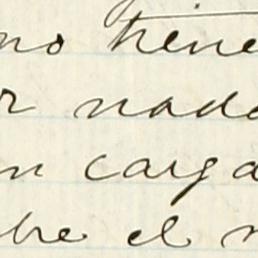 no tiene
r nada
n carga
bre el n